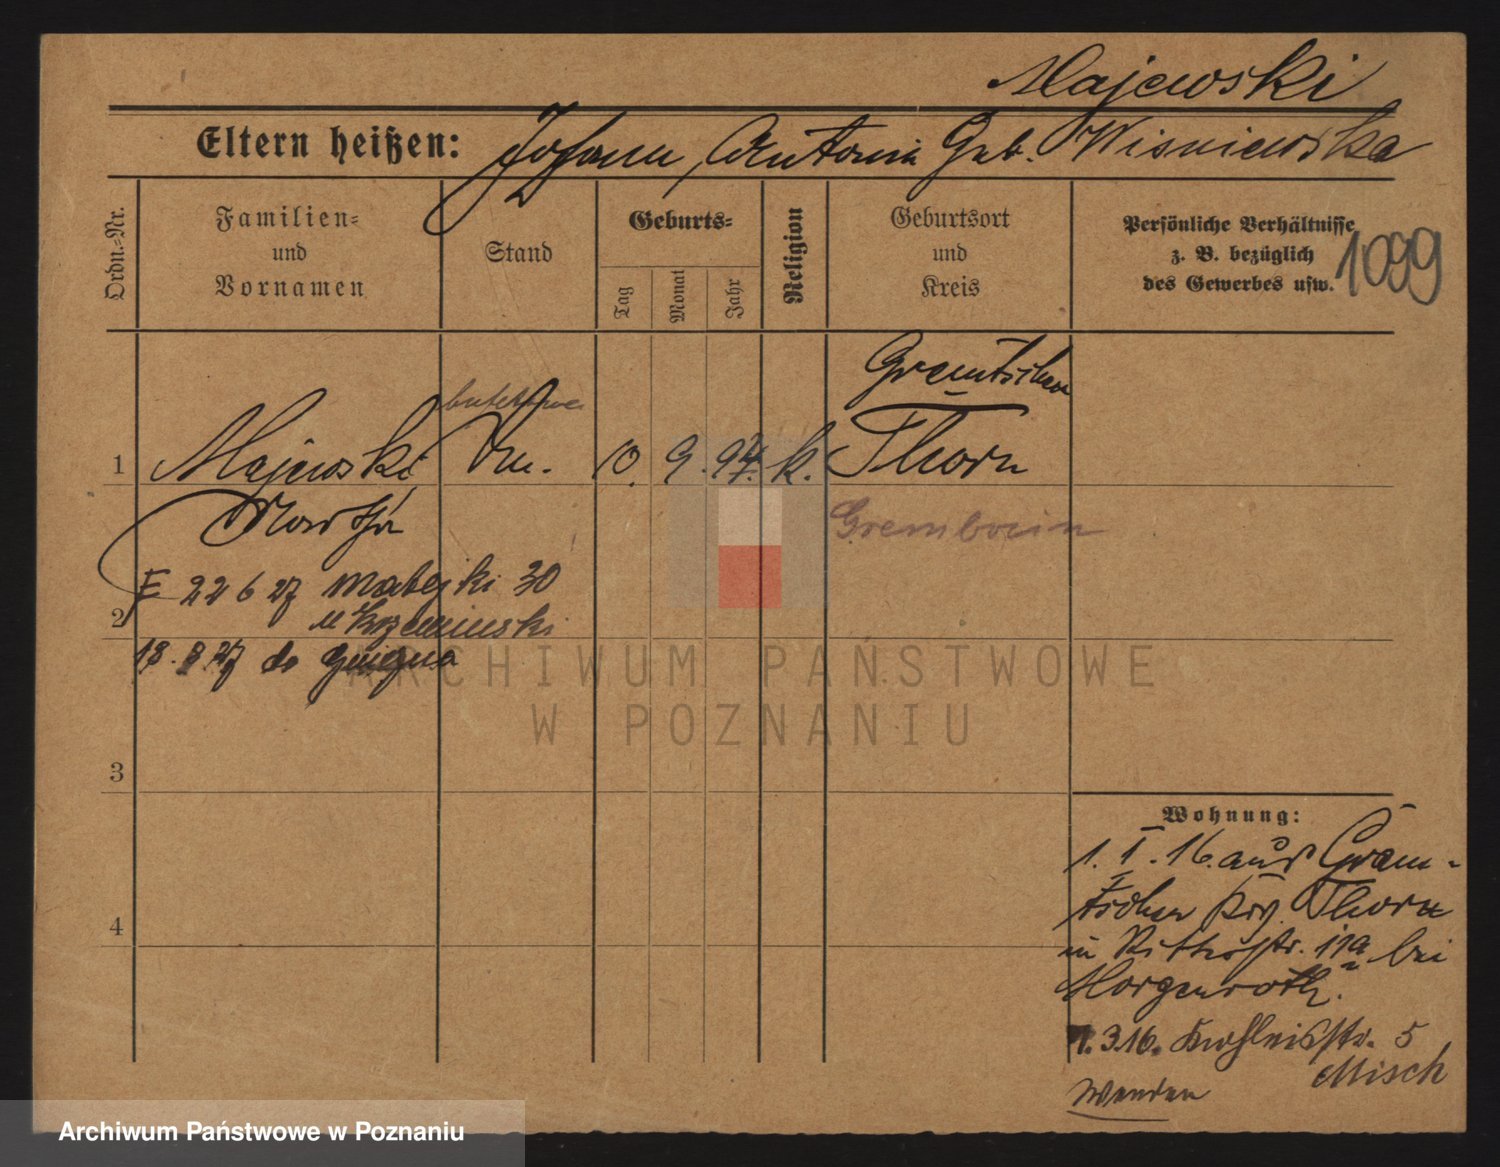 Majewski
Eltern heißen: Johann, Antonie Geb. Wisniewska
Ordn.-Nr.
Familien-
und
Vornamen
Stand
Geburts-
Tag
Monat
Jahr
Religion
Geburtsort
und
Kreis
Persönliche Verhältnisse
z. B. bezüglich
des Gewerbes usw.
1099
Gremtschen
1 Majewski 10. 9. 97. k. Thorn
Martha
Grembocin
22 6 27 Matejki 30
2 u Krzeminski
18. 8 27 do Gniezna
ARCHIWUM PAŃSTWOWE
W POZNANIU
3
4
Wohnung:
1. I. 16. aus Gram-
tschen Krs. Thorn
in Ritterstr. 11a bei
Morgenroth.
1. 3.16. 5
Misch
Wenden
Archiwum Państwowe w Poznaniu